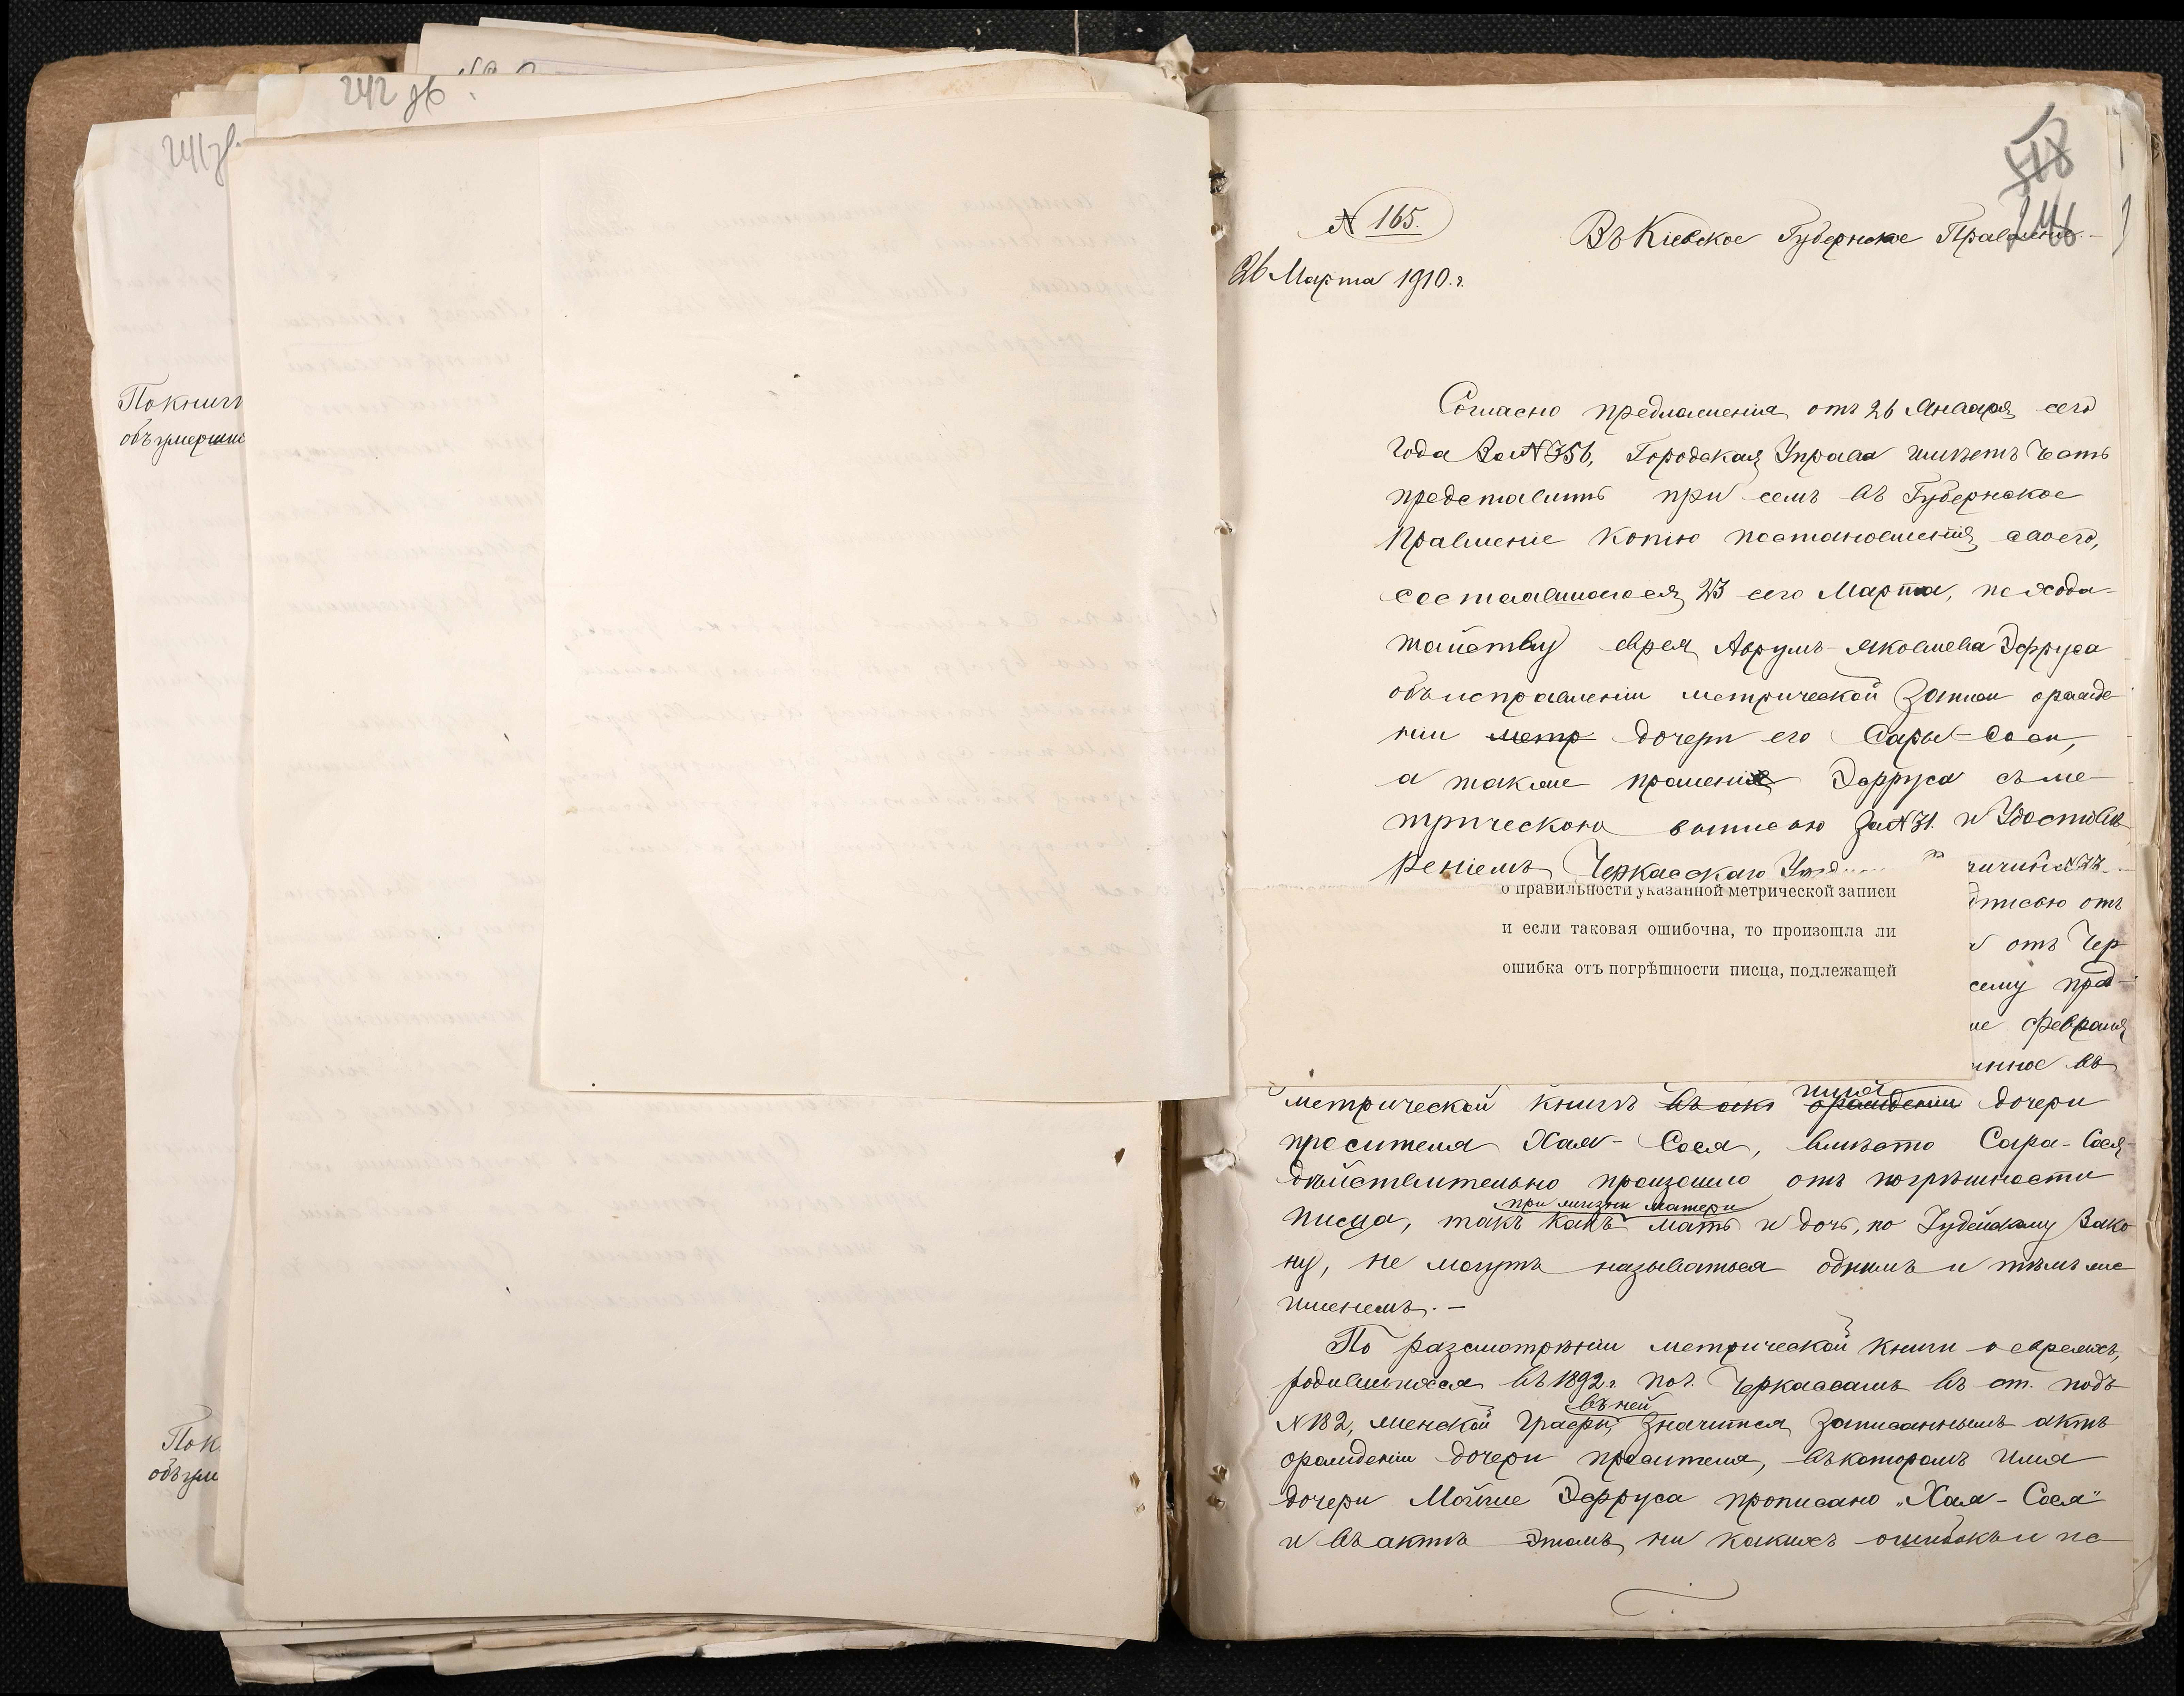 242 об.
241 об.
По книгѣ
объ умерши
Пок
объ ум
518
246
№ 165.
26 Марта 1910 г.
Въ Кіевское Губернское Правленіе.
Согласно предложенія отъ 26 Января сего
года за № 356, Городская Управа имѣетъ честь
представить при семъ въ Губернское
Правленіе копію постановленія своего,
состоявшагося 23 сего Марта, по хода-
тайству еврея Аврумъ-Яковлева Эфруса
объ исправленіи метрической записи о рожде-
ніи метр дочери его Сары-Соси,
а также прошеніе Эфруса съ ме-
трическою выписью за № 31 и Удостовѣ-
реніемъ Черкасскаго Уѣзд
о правильности указанной метрической записи
и если таковая ошибочна, то произошла ли
ошибка отъ погрѣшности писца, подлежащей
дписью отъ
отъ Чер
сему пред-
ие февраля
нное въ
имя
метрической книгѣ въ актѣ о рожденіи дочери
просителя Хая-Сося, вмѣсто Сара-Сося-
дѣйствительно произошло отъ погрѣшности
при жизни матери
писца, такъ какъ мать и дочь, по Іудейскому Зако-
ну, не могутъ называться однимъ и тѣмъ же
именемъ.-
По разсмотрѣніи метрической книги о евреяхъ,
родившихся въ 1892 г. по г. Черкассамъ въ ст. подъ
въ ней
№ 182, женской графы, значится записаннымъ актъ
о рожденіи дочери просителя, въ которомъ имя
дочери Мойше Эфруса прописано „Хая-Сося"
и въ актѣ этомъ, ни какихъ ошибокъ и по